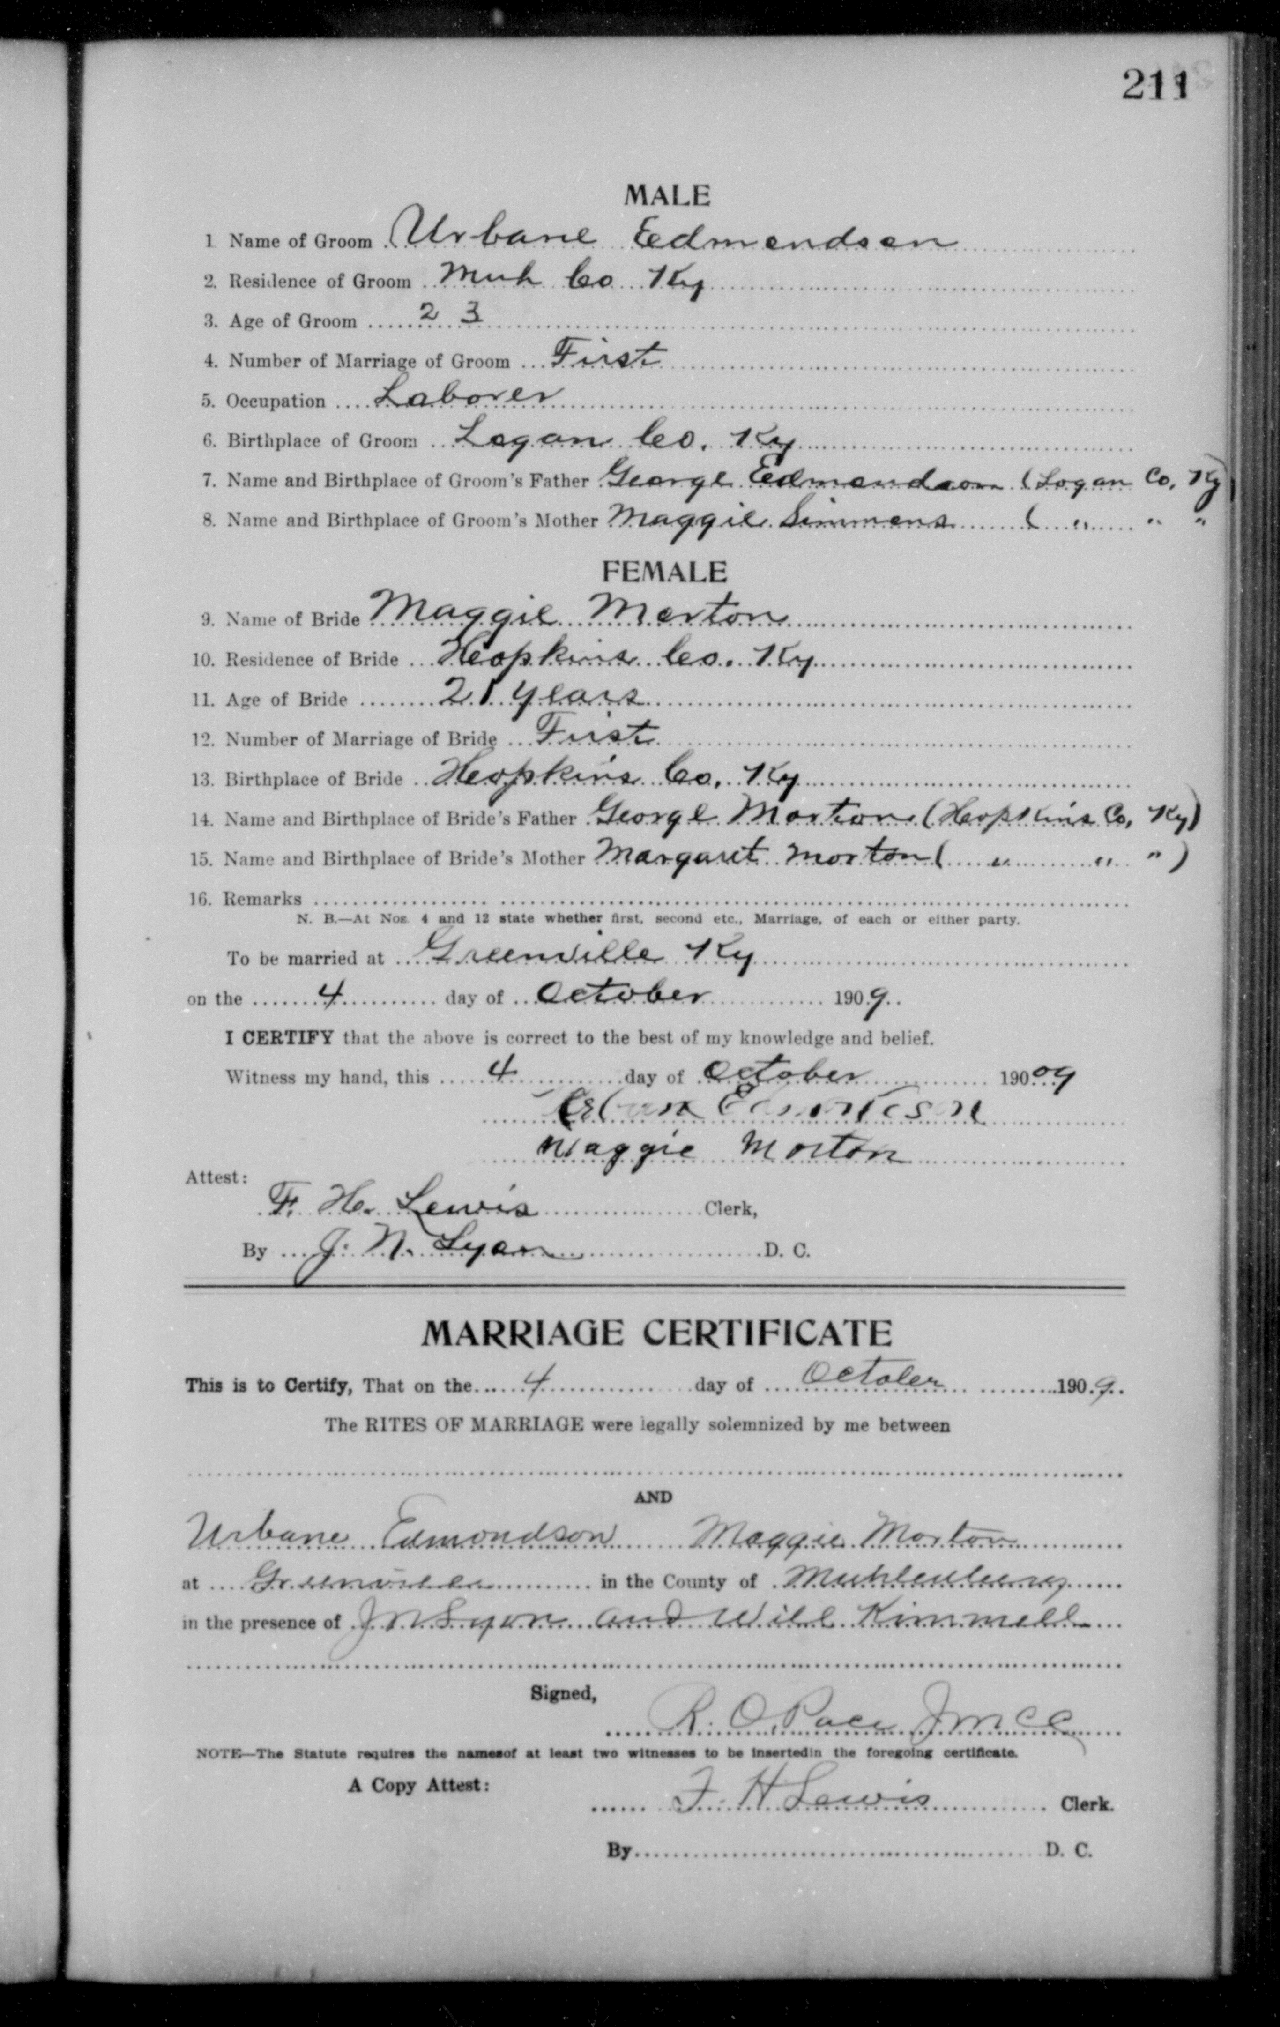 211
MALE
1 Name of Groom Urbane Edmondson
2. Residence of Groom Muh Co Ky
3. Age of Groom 23
4. Number of Marriage of Groom First
5. Occupation Laborer
6. Birthplace of Groom Logan Co. Ky
7. Name and Birthplace of Groom's Father George Edmondson (Logan Co, Ky)
8. Name and Birthplace of Groom's Mother Maggie Simmons ( " " "
FEMALE
9. Name of Bride Maggie Morton
10. Residence of Bride Hopkins Co. Ky
11. Age of Bride 21 years
12. Number of Marriage of Bride First
13. Birthplace of Bride Hopkins Co, Ky
14. Name and Birthplace of Bride's Father George Morton (Hopkins Co, Ky)
15. Name and Birthplace of Bride's Mother Margaret Morton ( " " " )
16. Remarks
N. B.—At Nos. 4 and 12 state whether first, second etc., Marriage, of each or either party.
To be married at Greenville Ky
on the 4 day of October 1909
I CERTIFY that the above is correct to the best of my knowledge and belief.
Witness my hand, this 4 day of October 19009
Maggie Morton
Attest:
F. H. Lewis Clerk,
By J. N. Lyon D. C.
MARRIAGE CERTIFICATE
This is to Certify, That on the 4 day of October 1909
The RITES OF MARRIAGE were legally solemnized by me between
AND
Urbane Edmondson Maggie Morton
at Greenville in the County of Muhlenburg
in the presence of J N Lyon and Will Kimmell
Signed,
R. O. Pace J M C C
NOTE—The Statute requires the namesof at least two witnesses to be insertedin the foregoing certificate.
A Copy Attest:
F. H Lewis Clerk.
By D. C.